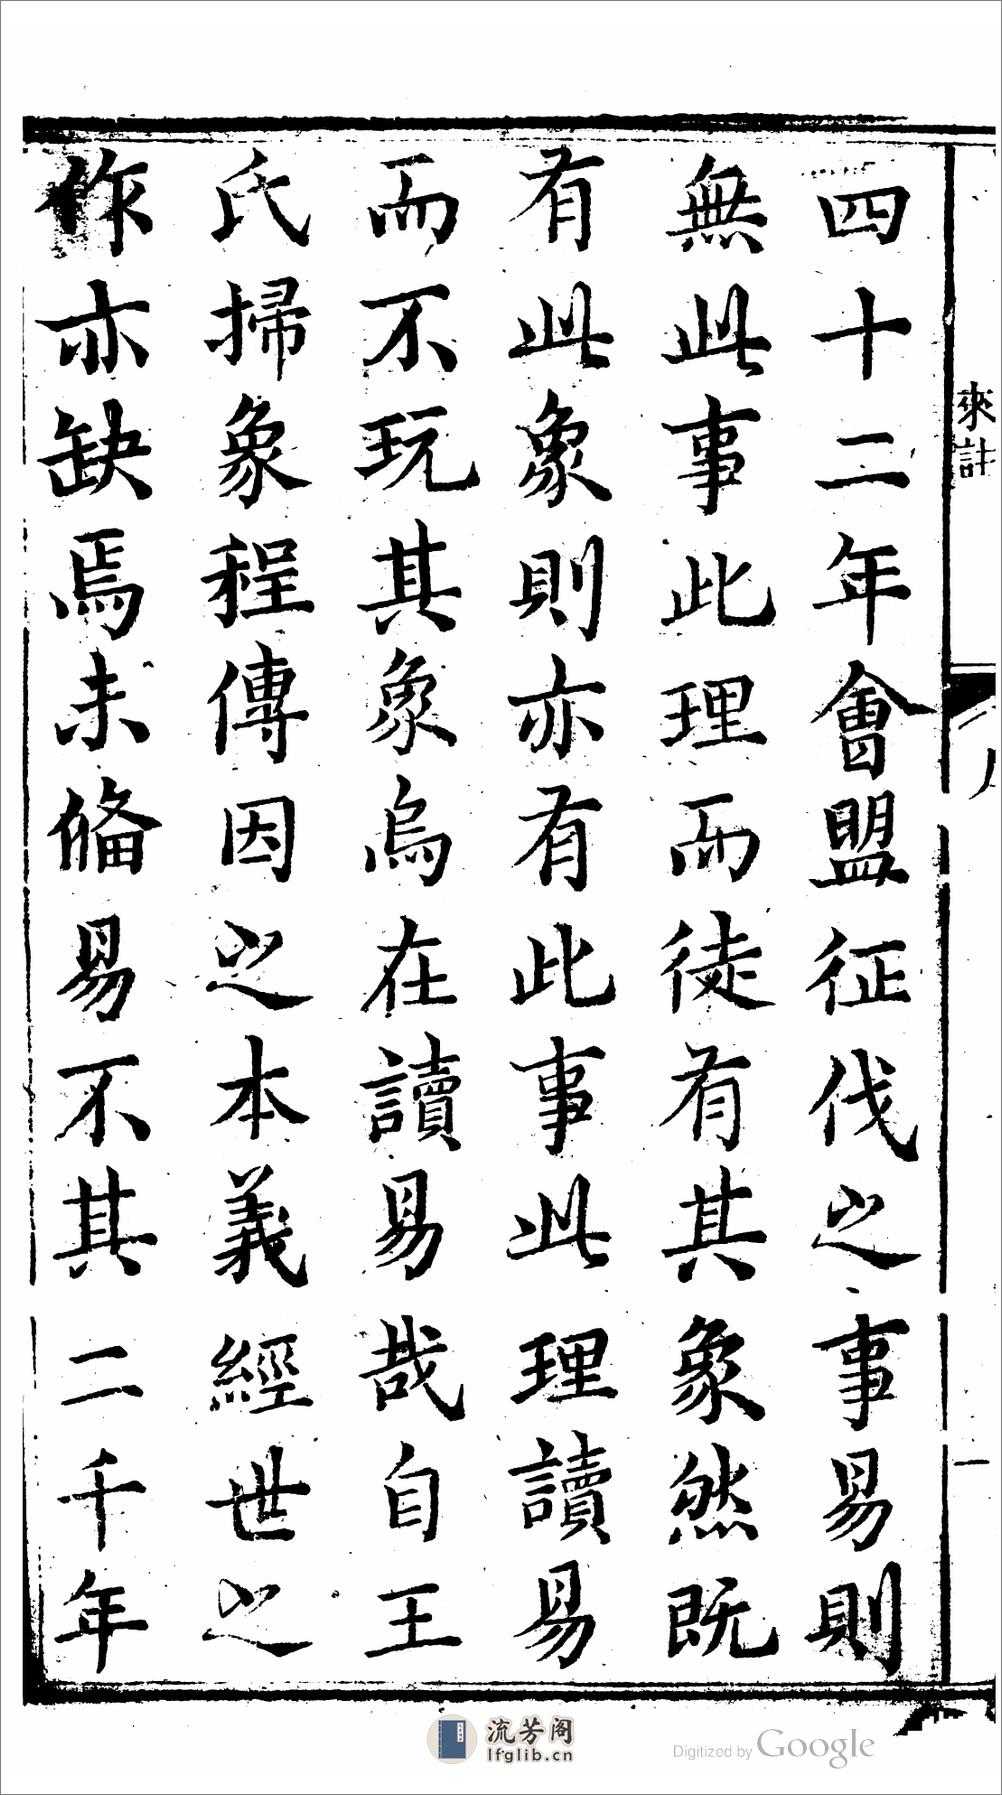 來註
四十二年會盟征伐之事易則
無此事此理而徒有其象然既
有此象則亦有此事此理讀易
而不玩其象烏在讀易哉自王
氏掃象程傳因之本義經世之
作亦缺焉未俻易不其二千年
一
流芳阁
lfglib.cn
Digitized by Google